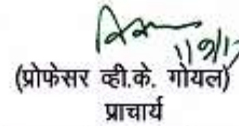 (प्रोफेसर व्ही.के. गोयल)
प्राचार्य